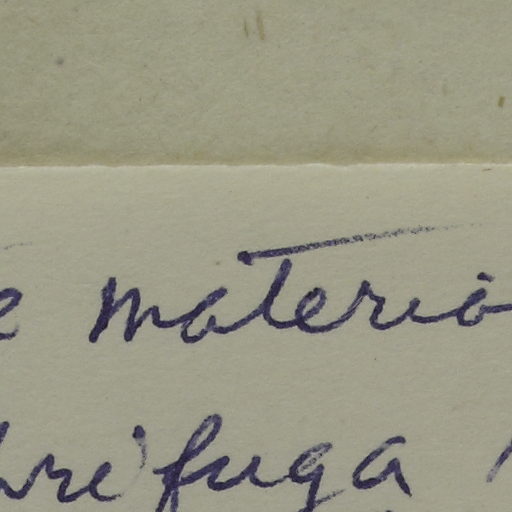 e materia
brifuga